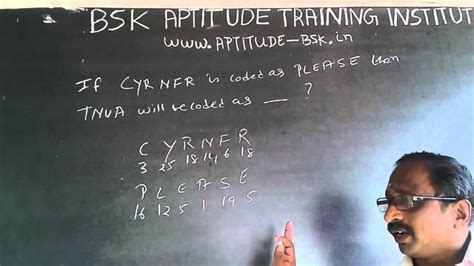 BSK APTITUDE TRAINING INSTITUT
www.APTITUDE-BSK.in
If CYRNFR is coded as PLEASE then
TNUA will be coded as __ ?
C Y R N F R
3 25 18 14 6 18
P L E A S E
16 12 5 1 19 5